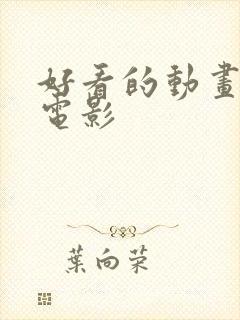 好看的動畫
電影
葉向荣